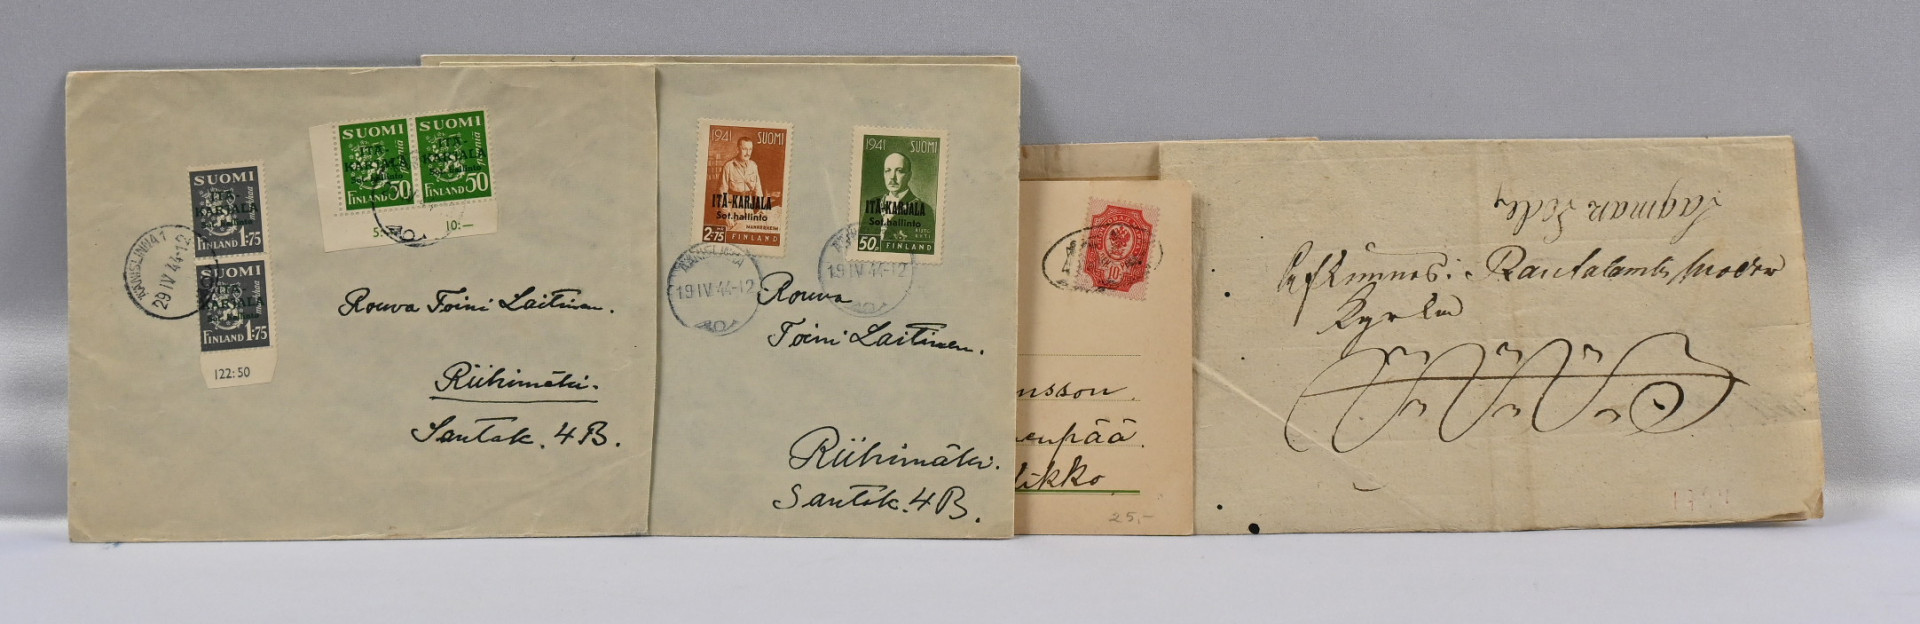 SUOMI
ITÄ-
KARJALA
Sot.hallinto
markkaa
FINLAND 1:75
SUOMI
ITÄ-
KARJALA
markkaa
FINLAND 1:75
122:50
ÄÄNISLINNA 1
29 IV 44-12
SUOMI
ITÄ-
KARJALA
Sot.hallinto
penniä
FINLAND 50
SUOMI
ITÄ-
KARJALA
Sot.hallinto
penniä
FINLAND 50
10:—
Rouva Toini Laitinen.
Riihimäki.
Santak. 4 B.
1941 SUOMI
ITÄ-KARJALA
Sot.hallinto
MANNERHEIM
2:75 FINLAND
1941 SUOMI
ITÄ-KARJALA
Sot.hallinto
50 FINLAND
19 IV 44-12
19 IV 44-12
Rouva
Toini Laitinen.
Riihimäki.
Santak. 4 B.
10
nsson.
enpää.
likko
25,-
Rautalambi